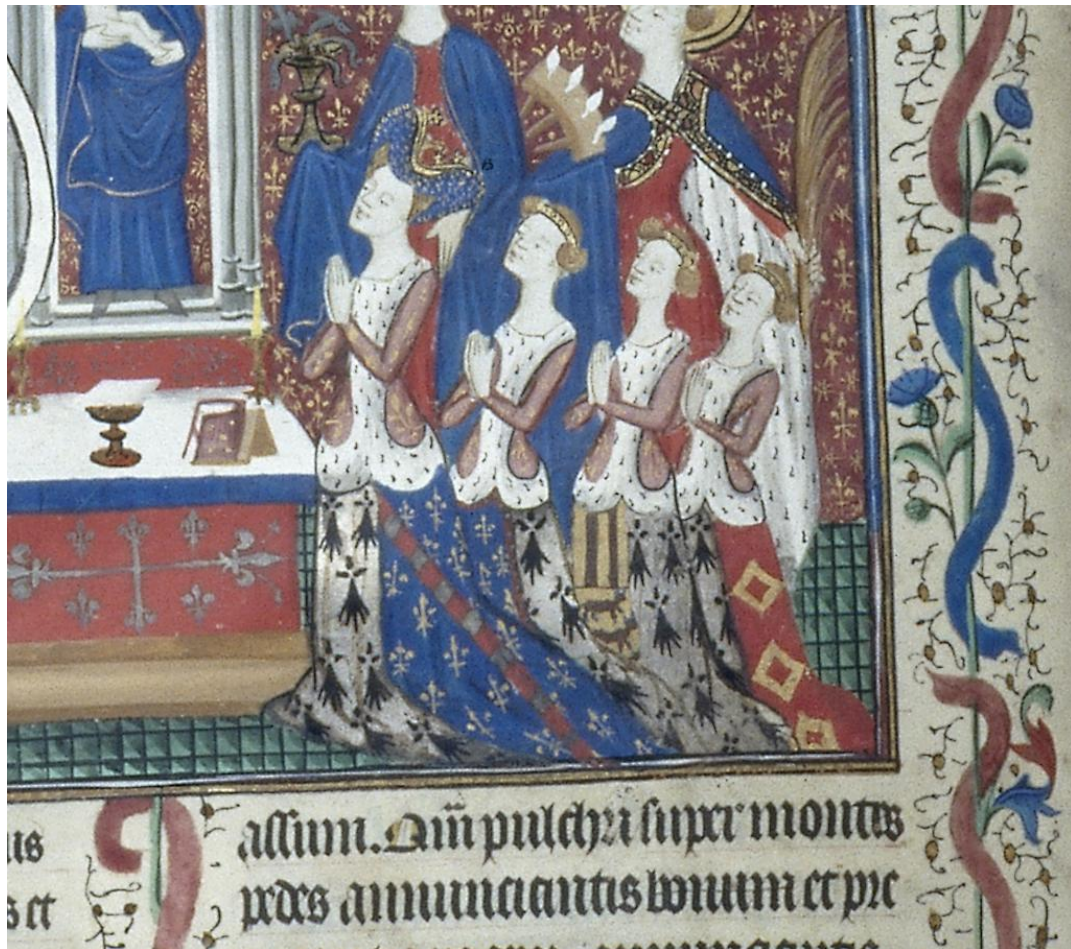 us
assum. Qm̅ pulchri super montes
s et
pedes annunciantis bonum et pre